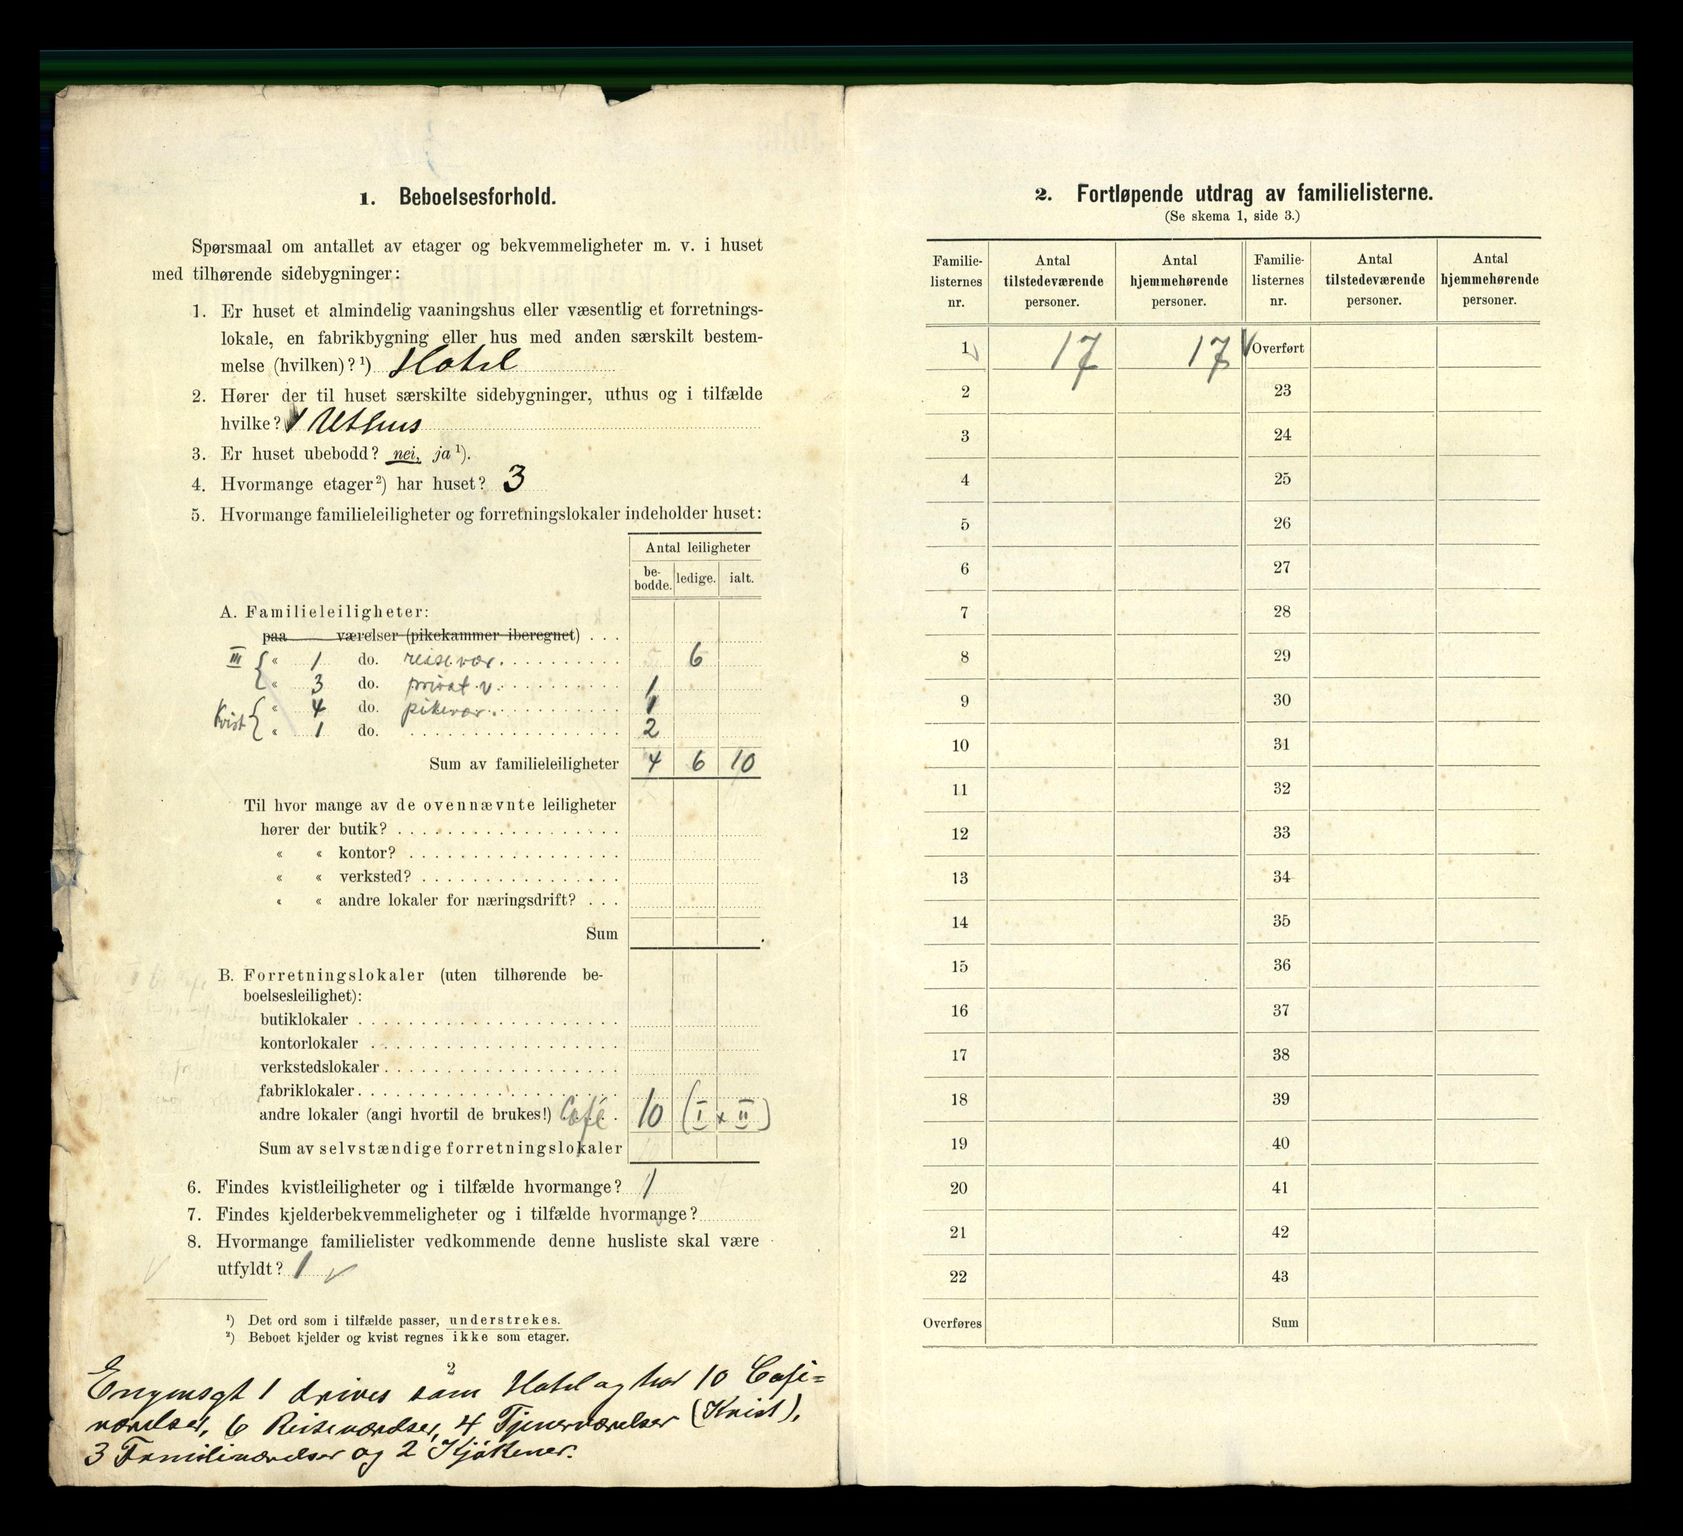 1. Beboelsesforhold.
Spørsmaal om antallet av etager og bekvemmeligheter m. v. i huset
med tilhørende sidebygninger:
1. Er huset et almindelig vaaningshus eller væsentlig et forretnings-
lokale, en fabrikbygning eller hus med anden særskilt bestem-
melse (hvilken)? ¹) Hotel
2. Hører der til huset særskilte sidebygninger, uthus og i tilfælde
hvilke? 1 Uthus
3. Er huset ubebodd? nei, ja ¹).
4. Hvormange etager ²) har huset? 3
5. Hvormange familieleiligheter og forretningslokaler indeholder huset:
Antal leiligheter
be-bodde. ledige. ialt.
A. Familieleiligheter:
paa værelser (pikekammer iberegnet) . . .
III { « 1 do. reisevær. 6
{ « 3 do. privat v. 1
Kvist { « 4 do. pikevær. 1
{ « 1 do. 2
Sum av familieleiligheter 4 6 10
Til hvor mange av de ovennævnte leiligheter
hører der butik?
« « kontor?
« « verksted?
« « andre lokaler for næringsdrift?
Sum
B. Forretningslokaler (uten tilhørende be-
boelsesleilighet):
butiklokaler
kontorlokaler
verkstedslokaler
fabriklokaler
andre lokaler (angi hvortil de brukes!) Café 10 (I + II)
Sum av selvstændige forretningslokaler
6. Findes kvistleiligheter og i tilfælde hvormange? 1
7. Findes kjelderbekvemmeligheter og i tilfælde hvormange?
8. Hvormange familielister vedkommende denne husliste skal være
utfyldt? 1
¹) Det ord som i tilfælde passer, understrekes.
²) Beboet kjelder og kvist regnes ikke som etager.
2
Engensgt 1 drives som Hotel og har 10 Café=
værelser, 6 Reiseværelser, 4 Tjenerværelser (Kvist),
3 Familieværelser og 2 Kjøkener.
2. Fortløpende utdrag av familielisterne.
(Se skema 1, side 3.)
Familie-listernes nr. Antal tilstedeværende personer. Antal hjemmehørende personer. Familie-listernes nr. Antal tilstedeværende personer. Antal hjemmehørende personer.
1 17 17 Overført
2 23
3 24
4 25
5 26
6 27
7 28
8 29
9 30
10 31
11 32
12 33
13 34
14 35
15 36
16 37
17 38
18 39
19 40
20 41
21 42
22 43
Overføres Sum